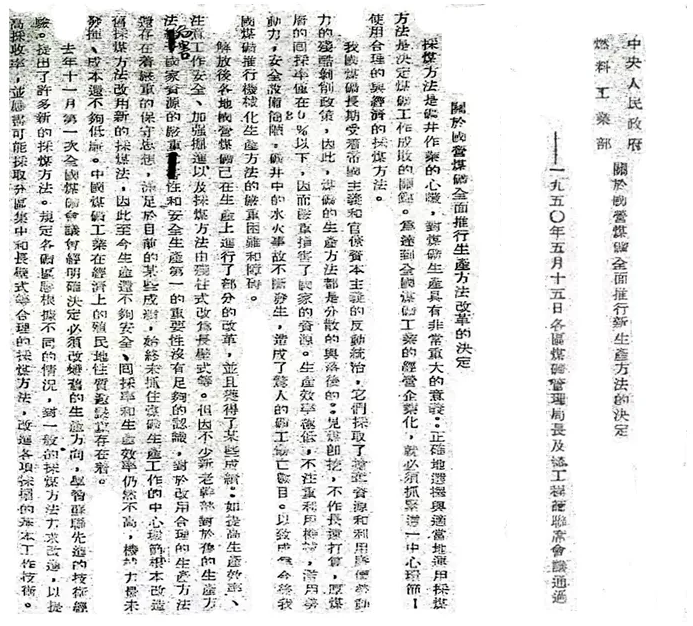 中央人民政府
燃料工業部
關於國營煤礦全面推行新生產方法的決定
——一九五〇年五月十五日各區煤礦管理局長及總工程師聯席會議通過
關於國營煤礦全面推行生產方法改革的決定
採煤方法是礦井作業的心臟，對煤礦生產具有非常重大的意義：正確地選擇與適當地運用採煤
方法是決定煤礦工作成敗的關鍵。為達到全國煤礦工業的經營企業化，就必須抓緊這一中心環節——
使用合理的與經濟的採煤方法。
我國煤礦長期受着帝國主義和官僚資本主義的反動統治，它們採取了掠奪資源和利用廉價勞動
力的殘酷剝削政策，因此，煤礦的生產方法都是分散的與落後的：見煤即挖，不作長遠打算，厚煤
層的回採率僅在%以下，因而嚴重損害了國家的資源。生產效率極低，不注重利用機械，濫用勞
動力，安全設備簡陋，礦井中的水火事故不斷發生，造成了驚人的礦工傷亡數目。以致成為今後我
國煤礦推行機械化生產方法的嚴重困難和障礙。
解放後各地國營煤礦已在生產上進行了部分的改革，並且獲得了某些成績：如提高生產效率、
注意工作安全、加強掘進以及採煤方法由殘柱式改為長壁式等。但因不少新老幹部對於舊的生產方
法國家資源的嚴重性和安全生產第一的重要性沒有足夠的認識，對於改用合理的生產方法
還存在着嚴重的保守思想，滿足於目前的某些成績，始終未抓住煤礦生產工作的中心環節根本改造
舊採煤方法改用新的採煤法，因此至今生產還不夠安全、回採率和生產效率仍然不高，機械力量未
發揮、成本還不夠低廉。中國煤礦工業在經濟上的殖民地性質還嚴重存在着。
去年十一月第一次全國煤礦會議曾經明確決定必須改變舊的生產方向，學習蘇聯先進的技術經
驗。提出了許多新的採煤方法。規定各礦區應根據不同的情況，對一般的採煤方法力求改進，以提
高採收率，並應儘可能採取分區集中和長壁式等合理的採煤方法，改進各項採掘的基本工作技術。